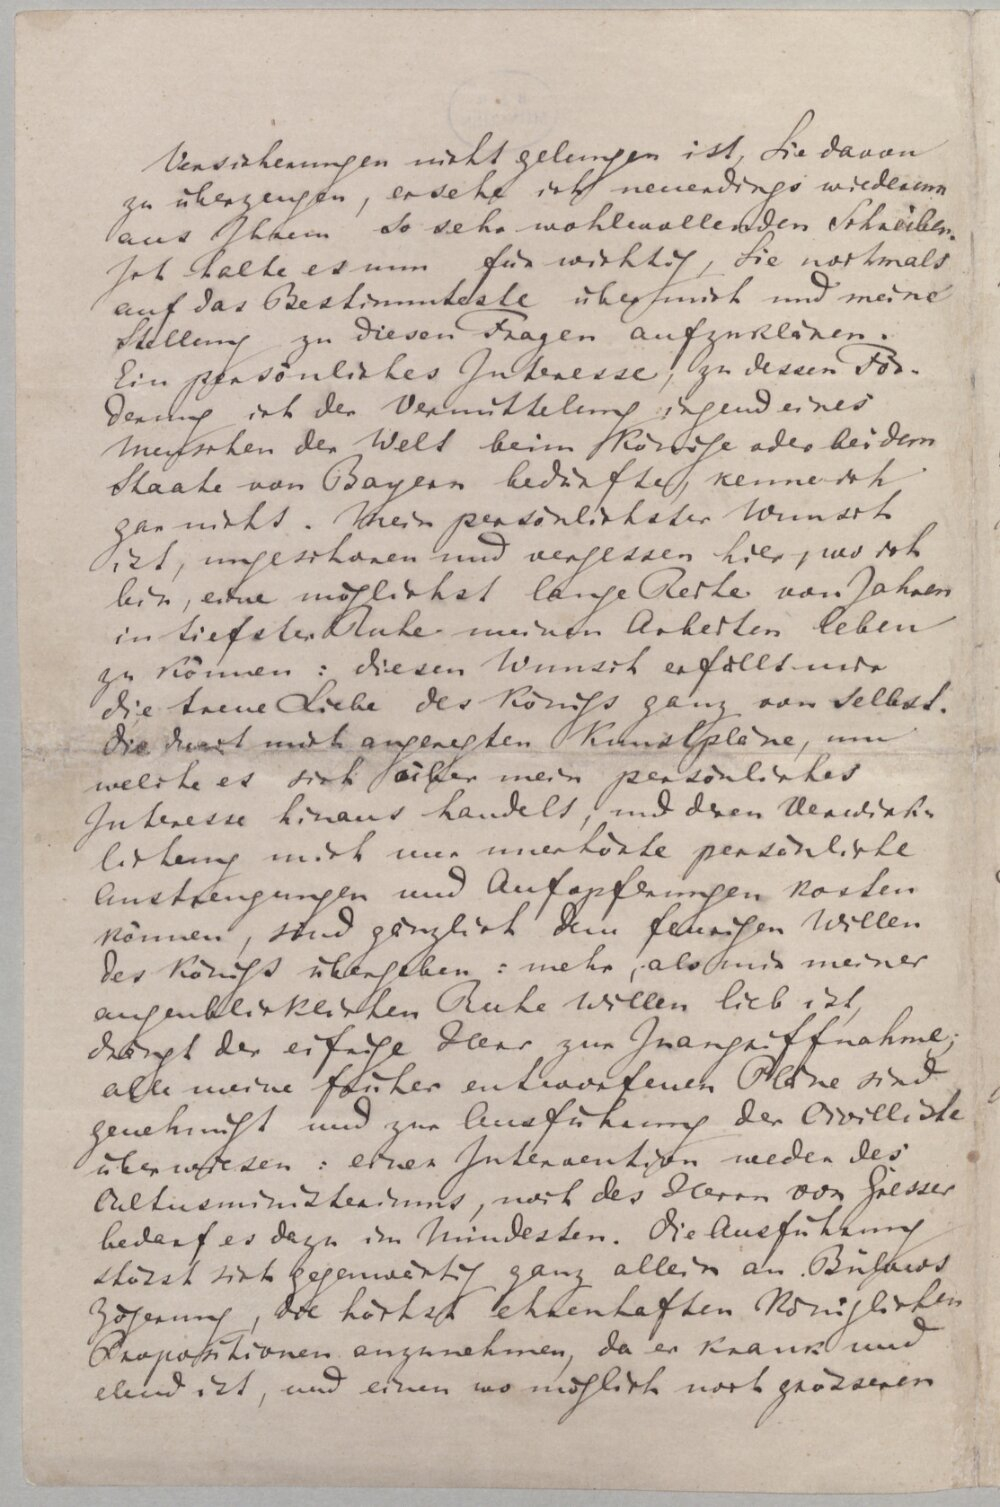 Versicherungen nicht gelungen ist, Sie davon
zu überzeugen, ersehe ich neuerdings wiederum
aus Ihrem so sehr wohlwollenden Schreiben.
Ich halte es nun für wichtig, Sie nochmals
auf das Bestimmteste über mich und meine
Stellung zu diesen Fragen aufzuklären.
Ein persönliches Interesse, zu dessen För-
derung ich der Vermittelung irgend eines
Menschen der Welt beim Könige oder bei dem
Staate von Bayern bedürfte, kenne ich
gar nicht. Mein persönlichster Wunsch
ist, ungeschoren und vergessen hier, wo ich
bin, eine möglichst lange Reihe von Jahren
in tiefster Ruhe meinen Arbeiten leben
zu können: diesen Wunsch erfüllt mir
die treue Liebe des Königs ganz von selbst.
Die durch mich angeregten Kunstpläne, um
welche es sich über mein persönliches
Interesse hinaus handelt, und deren Verwirk-
lichung mich nur unerhörte persönliche
Anstrengungen und Aufopferungen kosten
können, sind gänzlich dem feurigen Willen
des Königs übergeben: mehr, als mir meiner
augenblicklichen Ruhe willen lieb ist,
drängt der eifrige Herr zur Inangriffnahme;
alle meine früher entworfenen Pläne sind
genehmigt und zur Ausführung der Civilliste
überwiesen: einer Intervention weder des
Cultusministeriums, noch des Herrn von Gresser
bedarf es dazu im Mindesten. Die Ausführung
stösst sich gegenwärtig ganz allein an Bülows
Zögerung, die höchst ehrenhaften Königlichen
Propositionen anzunehmen, da er krank und
elend ist, und einen wo möglich noch grösseren